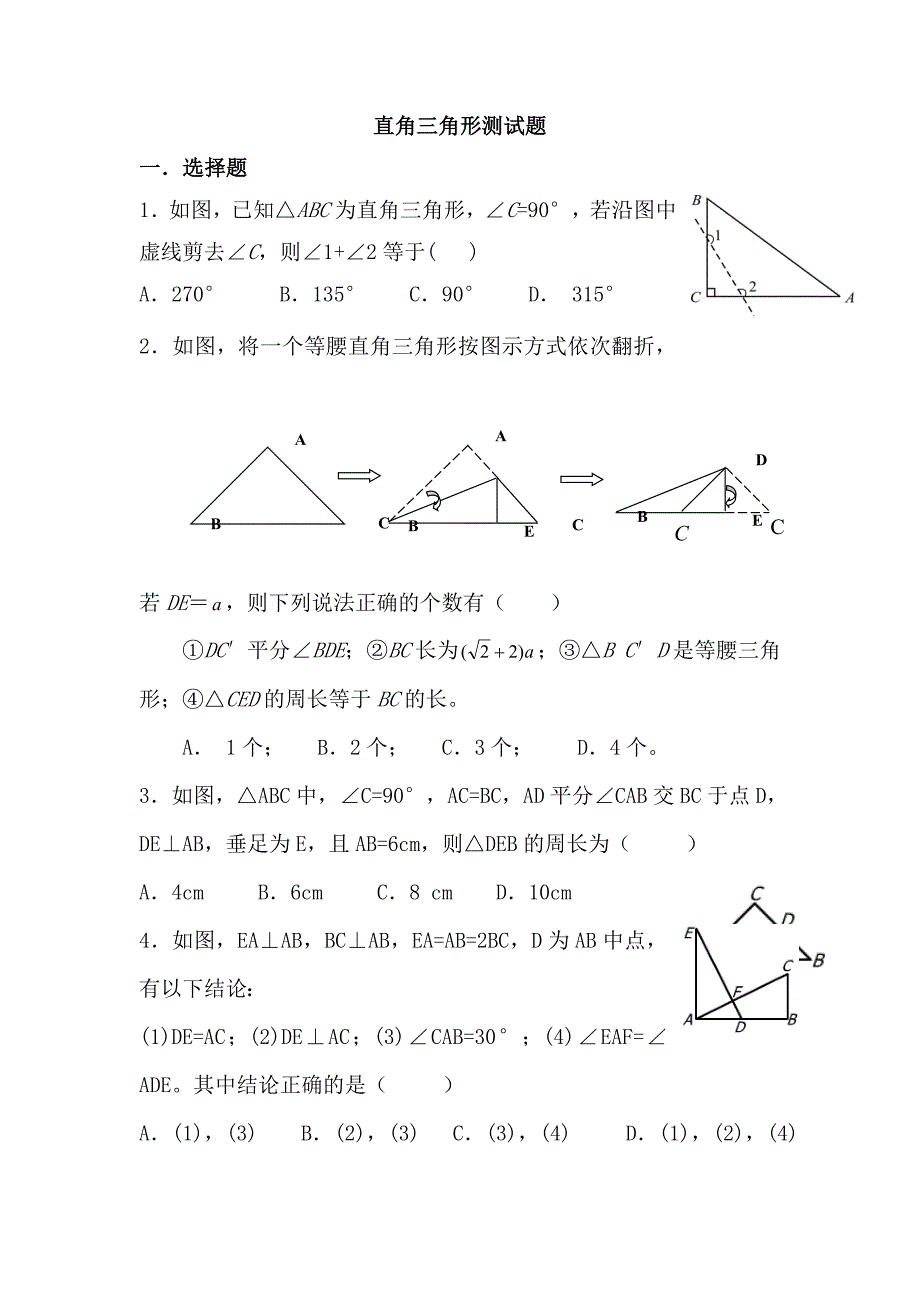 直角三角形测试题
一．选择题
1．如图，已知△ABC为直角三角形，∠C=90°，若沿图中
虚线剪去∠C，则∠1+∠2等于(   )
A．270°   B．135°   C．90°   D． 315°
B
1
C
2
A
2．如图，将一个等腰直角三角形按图示方式依次翻折，
A
B
C
A
B
E
C
D
B
C
E
C
若DE＝a，则下列说法正确的个数有（   ）
①DC′平分∠BDE；②BC长为(√2+2)a；③△B C′D是等腰三角
形；④△CED的周长等于BC的长。
A． 1个；   B．2个；   C．3个；   D．4个。
3．如图，△ABC中，∠C=90°，AC=BC，AD平分∠CAB交BC于点D，
DE⊥AB，垂足为E，且AB=6cm，则△DEB的周长为（   ）
A．4cm   B．6cm   C．8 cm   D．10cm
C
D
B
4．如图，EA⊥AB，BC⊥AB，EA=AB=2BC，D为AB中点，
有以下结论：
(1)DE=AC；(2)DE⊥AC；(3)∠CAB=30°；(4)∠EAF=∠
ADE。其中结论正确的是（   ）
A．(1)，(3)   B．(2)，(3)   C．(3)，(4)   D．(1)，(2)，(4)
E
C
F
A
D
B